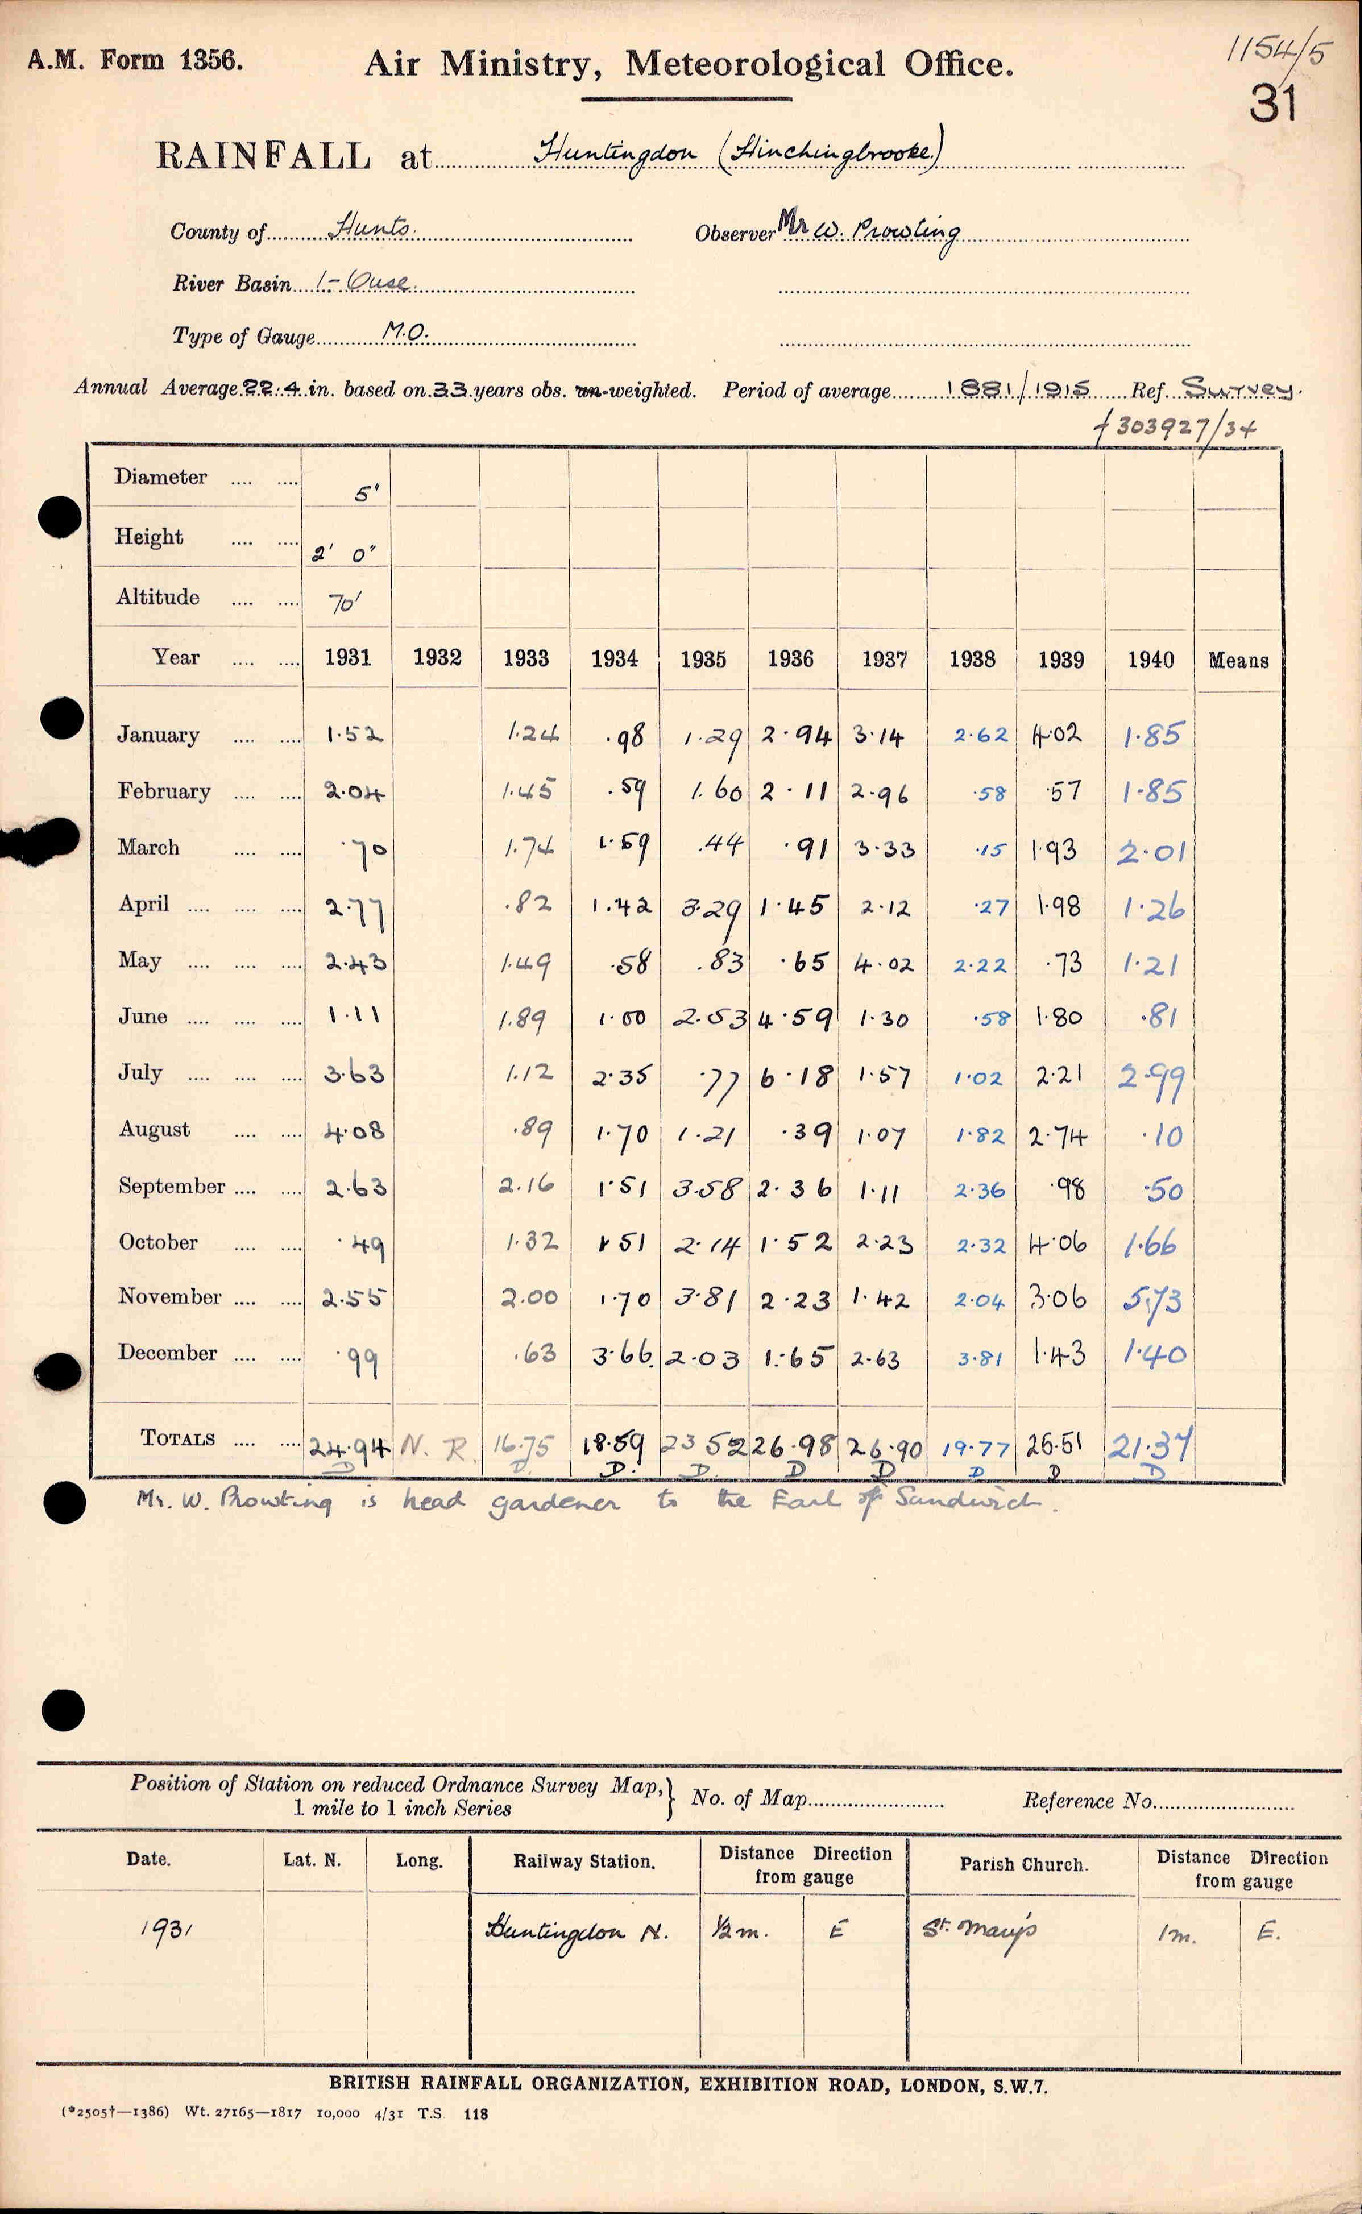 A.M. Form 1356.
Air Ministry, Meteorological Office.
1154/5
31
RAINFALL at Huntingdon (Hinchingbrooke)
County of Hunts. Observer Mr W. Prowting
River Basin 1-Ouse.
Type of Gauge M.O.
Annual Average 22.4 in. based on 33 years obs. un-weighted. Period of average 1881/1915 Ref. Survey.
f 303927/34
Diameter .... .... 5"
Height .... .... 2' 0"
Altitude .... .... 70'
Year .... .... 1931 1932 1933 1934 1935 1936 1937 1938 1939 1940 Means
January .... .... 1.52 1.24 .98 1.29 2.94 3.14 2.62 4.02 1.85
February .... .... 2.04 1.45 .59 1.60 2.11 2.96 .58 .57 1.85
March .... .... .70 1.74 1.59 .44 .91 3.33 .15 1.93 2.01
April .... .... .... 2.77 .82 1.42 3.29 1.45 2.12 .27 1.98 1.26
May .... .... .... 2.43 1.49 .58 .83 .65 4.02 2.22 .73 1.21
June .... .... .... 1.11 1.89 1.00 2.53 4.59 1.30 .58 1.80 .81
July .... .... .... 3.63 1.12 2.35 .77 6.18 1.57 1.02 2.21 2.99
August .... .... 4.08 .89 1.70 1.21 .39 1.07 1.82 2.74 .10
September .... .... 2.63 2.16 1.51 3.58 2.36 1.11 2.36 .98 .50
October .... .... .49 1.32 1.51 2.14 1.52 2.23 2.32 4.06 1.66
November .... .... 2.55 2.00 1.70 3.81 2.23 1.42 2.04 3.06 5.73
December .... .... .99 .63 3.66 2.03 1.65 2.63 3.81 1.43 1.40
TOTALS .... .... 24.94 N. R. 16.75 18.59 23.52 26.98 26.90 19.77 25.51 21.37
D D. D. D. D D D D D
Mr. W. Prowting is head gardener to the Earl of Sandwich.
Position of Station on reduced Ordnance Survey Map, } No. of Map Reference No.
1 mile to 1 inch Series
Date. Lat. N. Long. Railway Station. Distance Direction from gauge Parish Church. Distance Direction from gauge
1931 Huntingdon N. ½ m. E St. Mary's 1 m. E.
BRITISH RAINFALL ORGANIZATION, EXHIBITION ROAD, LONDON, S.W.7.
(*2505†—1386) Wt. 27165—1817 10,000 4/31 T.S. 118